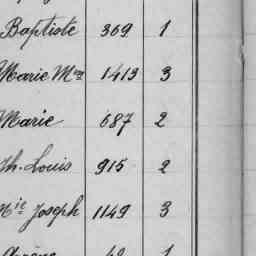 Baptiste 369 1
Marie Mgte 1413 3
Marie 687 2
Th. Louis 915 2
Nic Joseph 1149 3